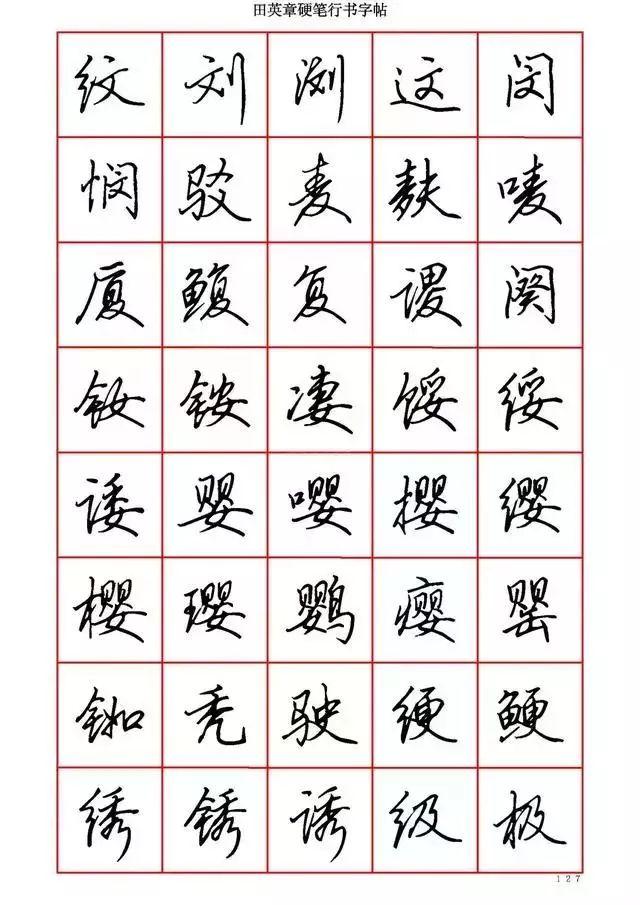 田英章硬笔行书字帖
纹 刘 浏 这 闵
悯 驳 麦 麸 唛
厦 鳆 复 谡 阕
钕 铵 凄 馁 绥
诿 婴 嘤 撄 缨
樱 璎 鹦 瘿 罂
铷 秃 驶 绠 鲠
绣 锈 诱 级 极
127